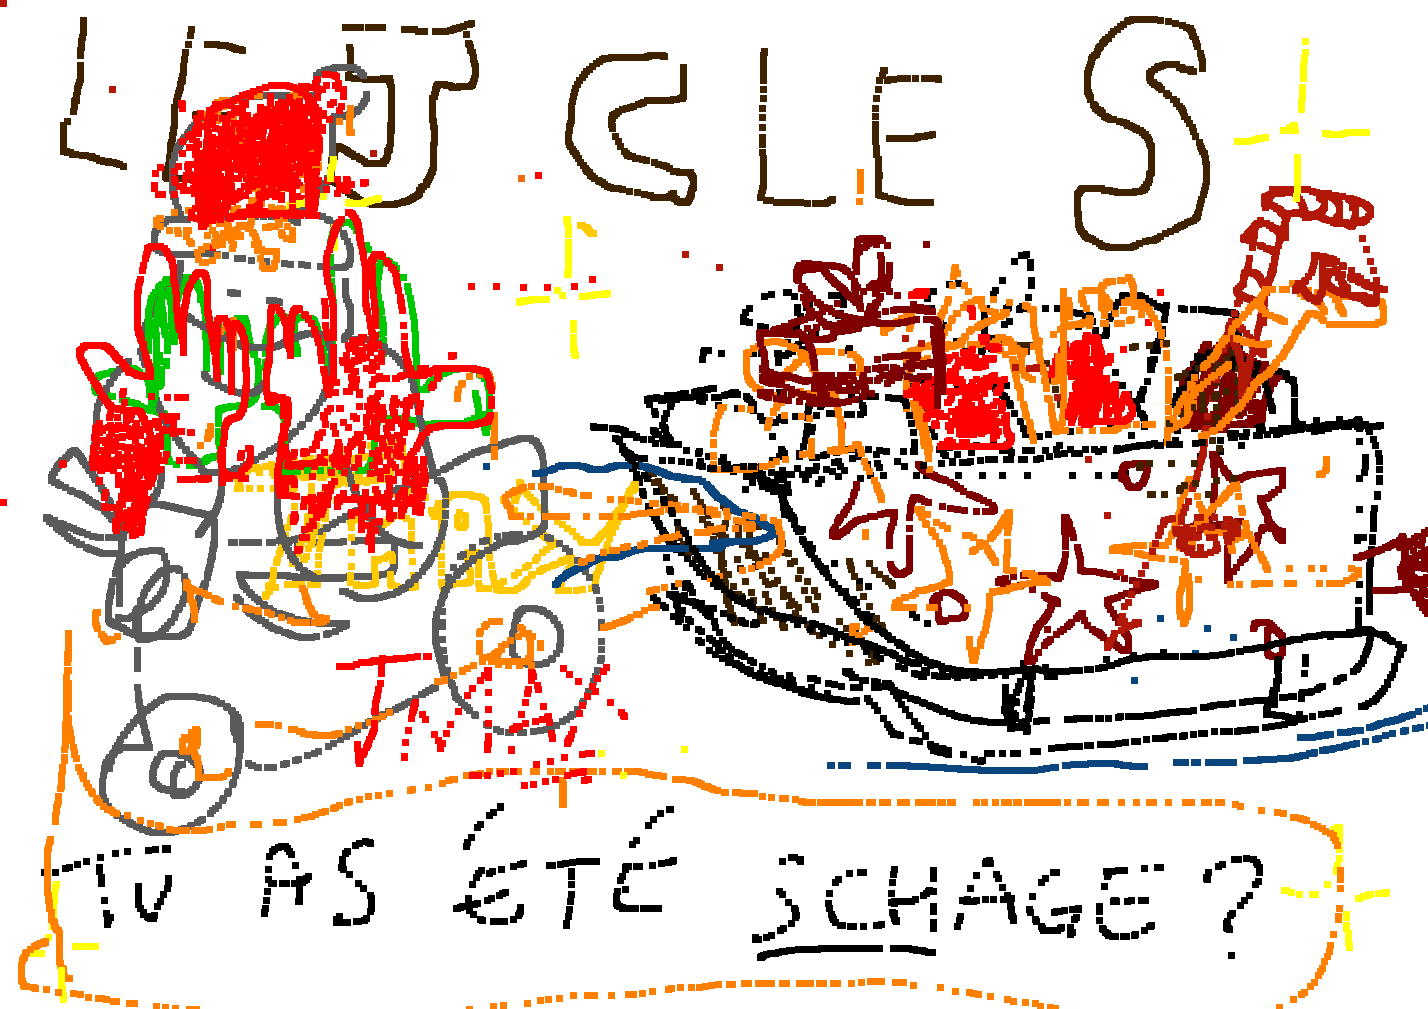 LE J CLE S
TU AS ÉTÉ SCHAGE ?